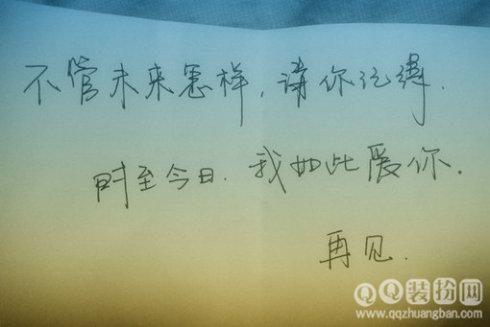 不管未来怎样，请你记得.
时至今日.我如此爱你.
再见.
QQ装扮网
www.qqzhuangban.com